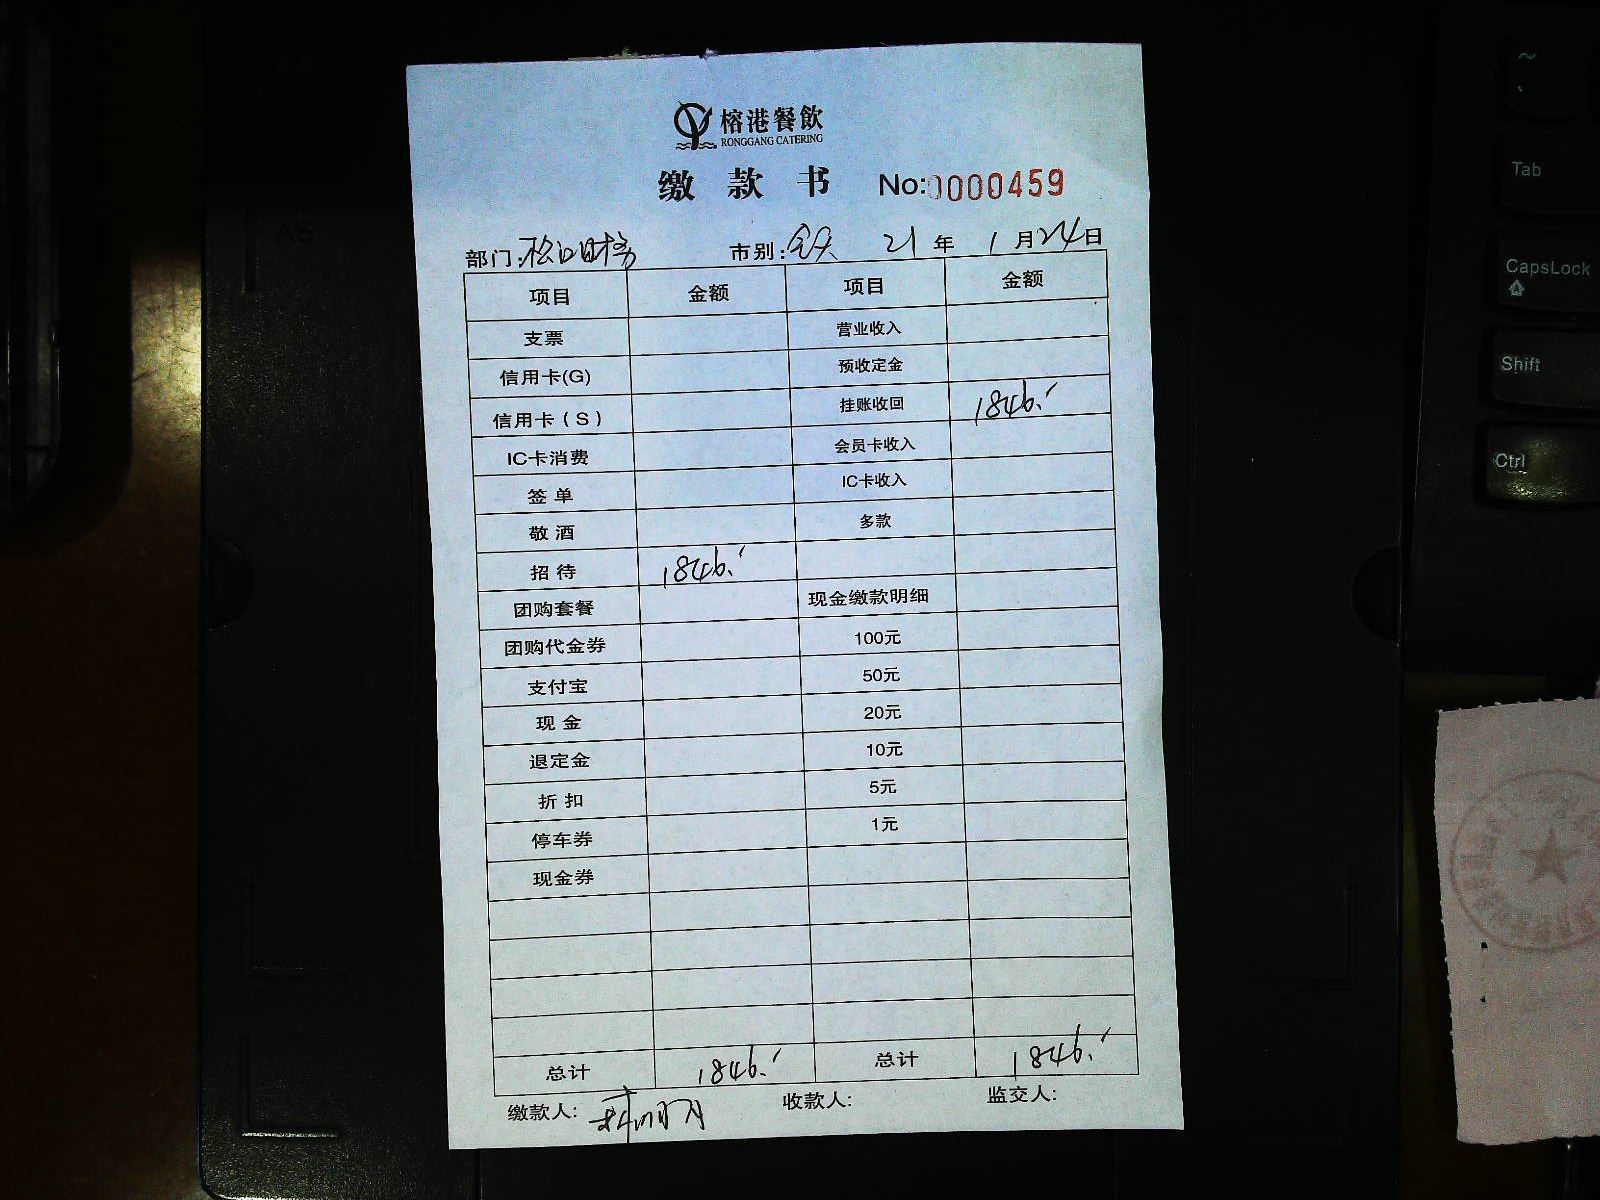 榕港餐飲
RONGGANG CATERING
缴款书 No:0000459
部门:松口财务 市别:全天 21年1月24日
项目 金额 项目 金额
支票 营业收入
信用卡(G) 预收定金
信用卡（S） 挂账收回 1846.-
IC卡消费 会员卡收入
签单 IC卡收入
敬酒 多款
招待 1846.-
团购套餐 现金缴款明细
团购代金券 100元
支付宝 50元
现金 20元
退定金 10元
折扣 5元
停车券 1元
现金券
总计 1846.- 总计 1846.-
缴款人: 收款人: 监交人:
~
Tab
CapsLock
Shift
Ctrl
A5